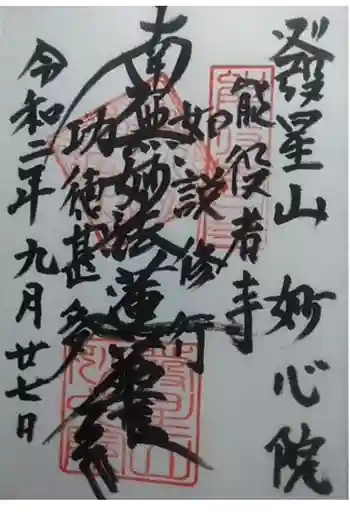 發星山 妙心院
能役者寺
如説修行
南無妙法蓮華経
功徳甚多
令和二年 九月廿七日